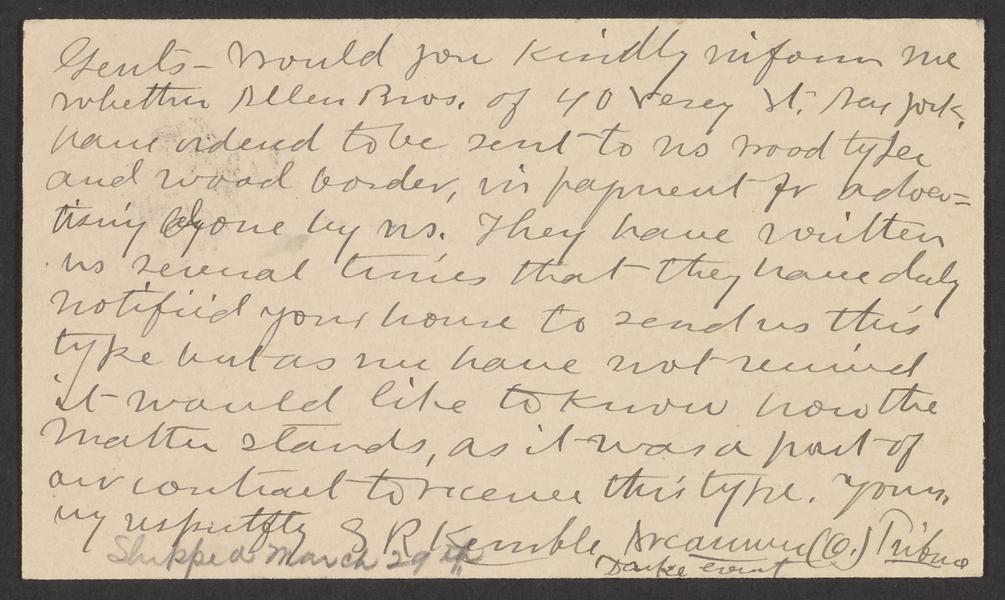 Gents – Would you kindly inform me
whether Allen Bros. of 40 Vesey St. New York,
have ordered to be sent to us wood type
and wood border, in payment for adver=
tising done by us. They have written
us several times that they have duly
notified your house to send us this
type but as we have not received
it would like to know how the
matter stands, as it was a part of
our contract to receive this type. Yours,
S R Kemble, Arcanum (O.) Tribune
Darke
Shipped March 29th